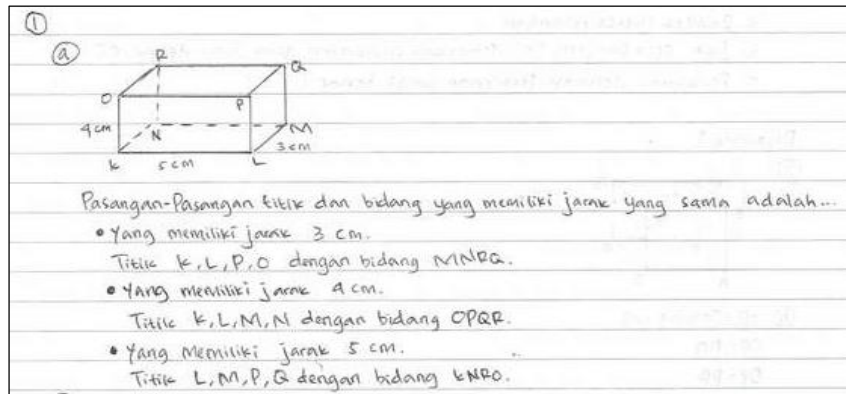 ①
ⓐ
R
Q
O
P
4 cm
N
M
3 cm
K
5 cm
L
Pasangan-Pasangan titik dan bidang yang memiliki jarak yang sama adalah...
• Yang memiliki jarak 3 cm.
Titik K, L, P, O dengan bidang MNRQ.
• Yang memiliki jarak 4 cm.
Titik K, L, M, N dengan bidang OPQR.
• Yang memiliki jarak 5 cm.
Titik L, M, P, Q dengan bidang KNRO.